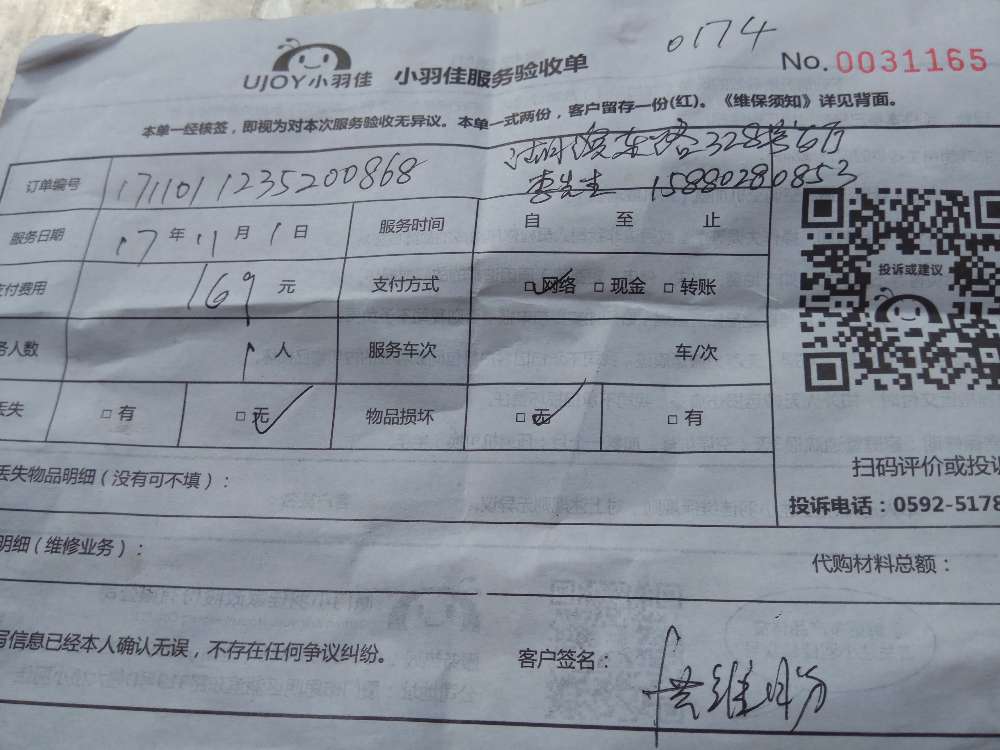 0174
UJOY小羽佳 小羽佳服务验收单 No.0031165
本单一经核签，即视为对本次服务验收无异议。本单一式两份，客户留存一份(红)。《维保须知》详见背面。
328
订单编号 171101 1235200868 李先生 15880280853
服务日期 17年11月1日 服务时间 自 至 止
支付费用 169元 支付方式 □网络 □现金 □转账
务人数 1人 服务车次 车/次
丢失 □有 □无 物品损坏 □无 □有
投诉或建议
扫码评价或投诉
丢失物品明细（没有可不填）：
投诉电话：0592-5178
明细（维修业务）：
代购材料总额：
写信息已经本人确认无误，不存在任何争议纠纷。 客户签名：